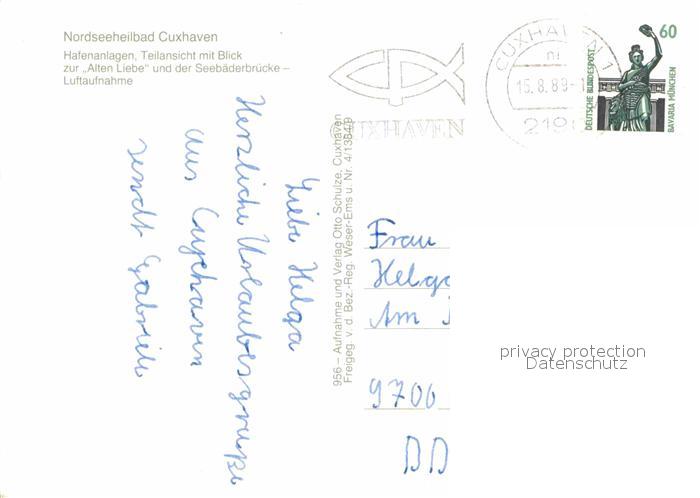 Nordseeheilbad Cuxhaven
Hafenanlagen, Teilansicht mit Blick
zur „Alten Liebe“ und der Seebäderbrücke –
Luftaufnahme
CUXHAVEN
CUXHAVEN 1
15.8.89-1
219
60
DEUTSCHE BUNDESPOST
BAVARIA MÜNCHEN
956 – Aufnahme und Verlag Otto Schulze, Cuxhaven
Freigeg. v. d. Bez.-Reg. Weser-Ems u. Nr. 4/1384/9
Liebe Helga
Herzliche Urlaubsgrüße
aus Cuxhaven
sendt Gabriele
Frau
Helga
Am
9706
DD
privacy protection
Datenschutz